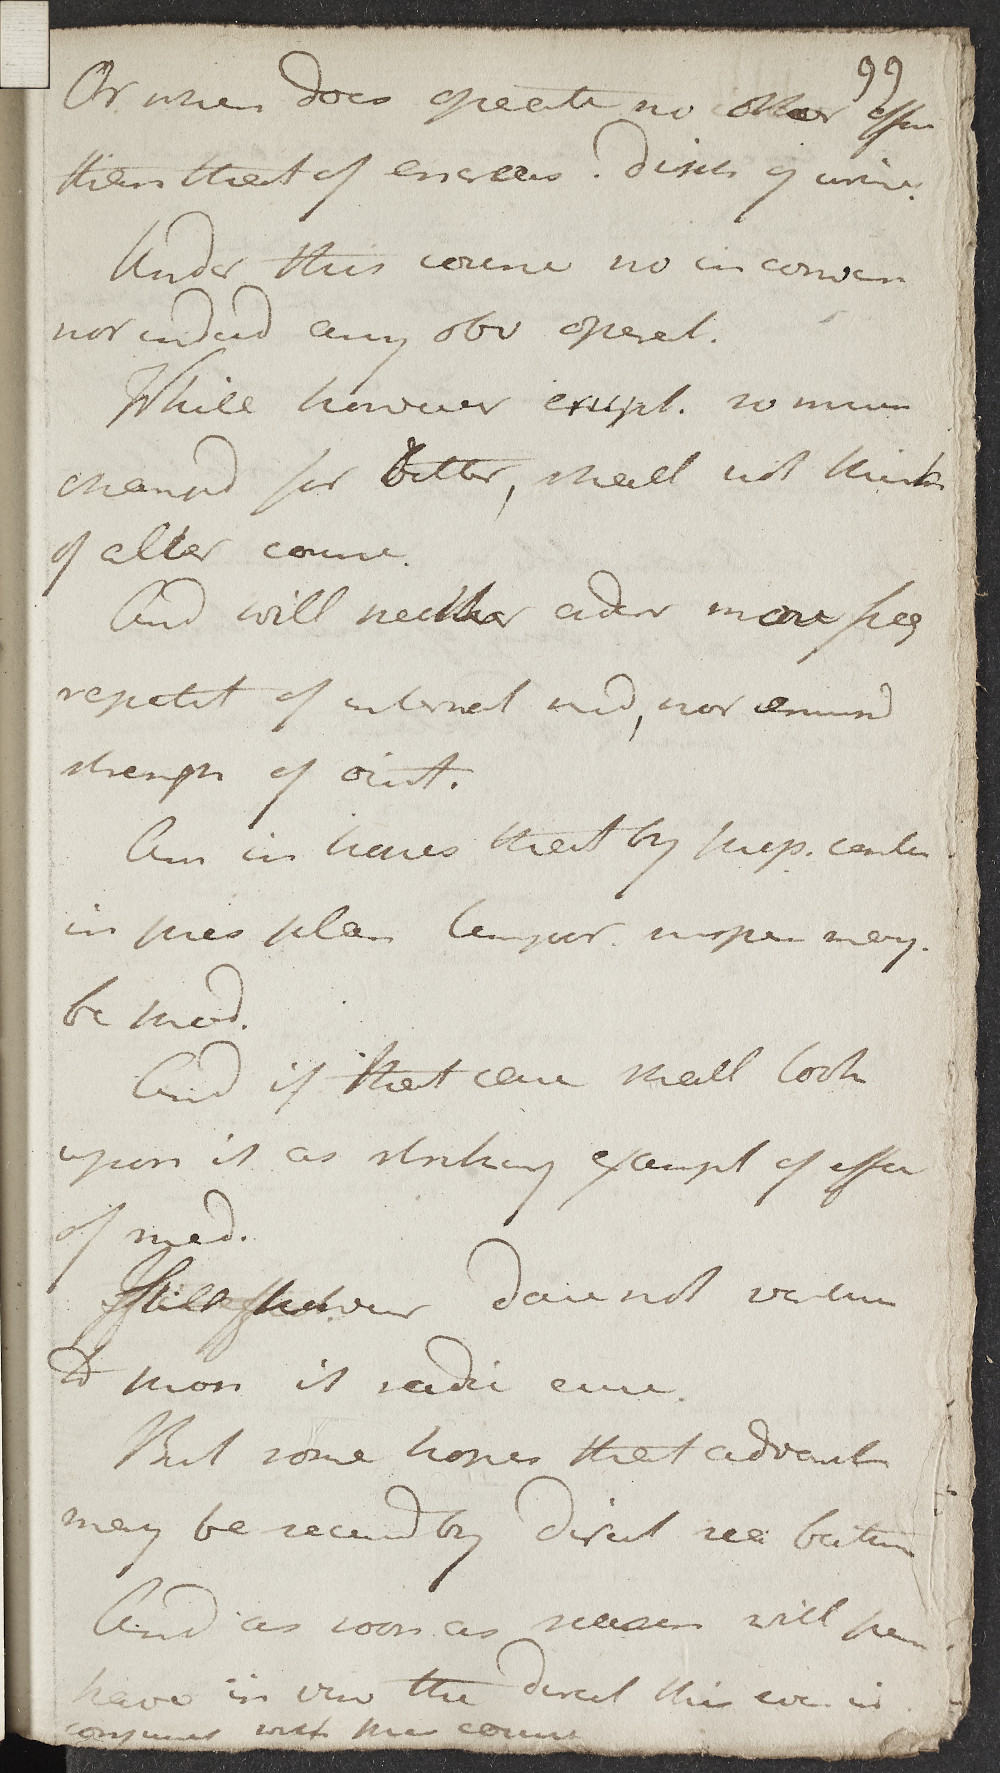 99
Or when does operate no other effec
than that of increas. disch of urine.
Under this course no inconven
nor indeed any obv operat.
While however except. so muc
changed for better, shall not think
of alter course.
And will neither order more freq
repetit of internal med, nor
strength of oint.
Am in hopes that by prop. contin
in pres plan tempor. may.
be mad.
And if that case shall look
upon it as striking exampl of effec
of med.
however dare not ventur
to prom it radic cure.
But some hopes that advant
may be secured by direct sea bathin
And as soon as season will perm
have in view the direct this exer in
conjunct with pres course